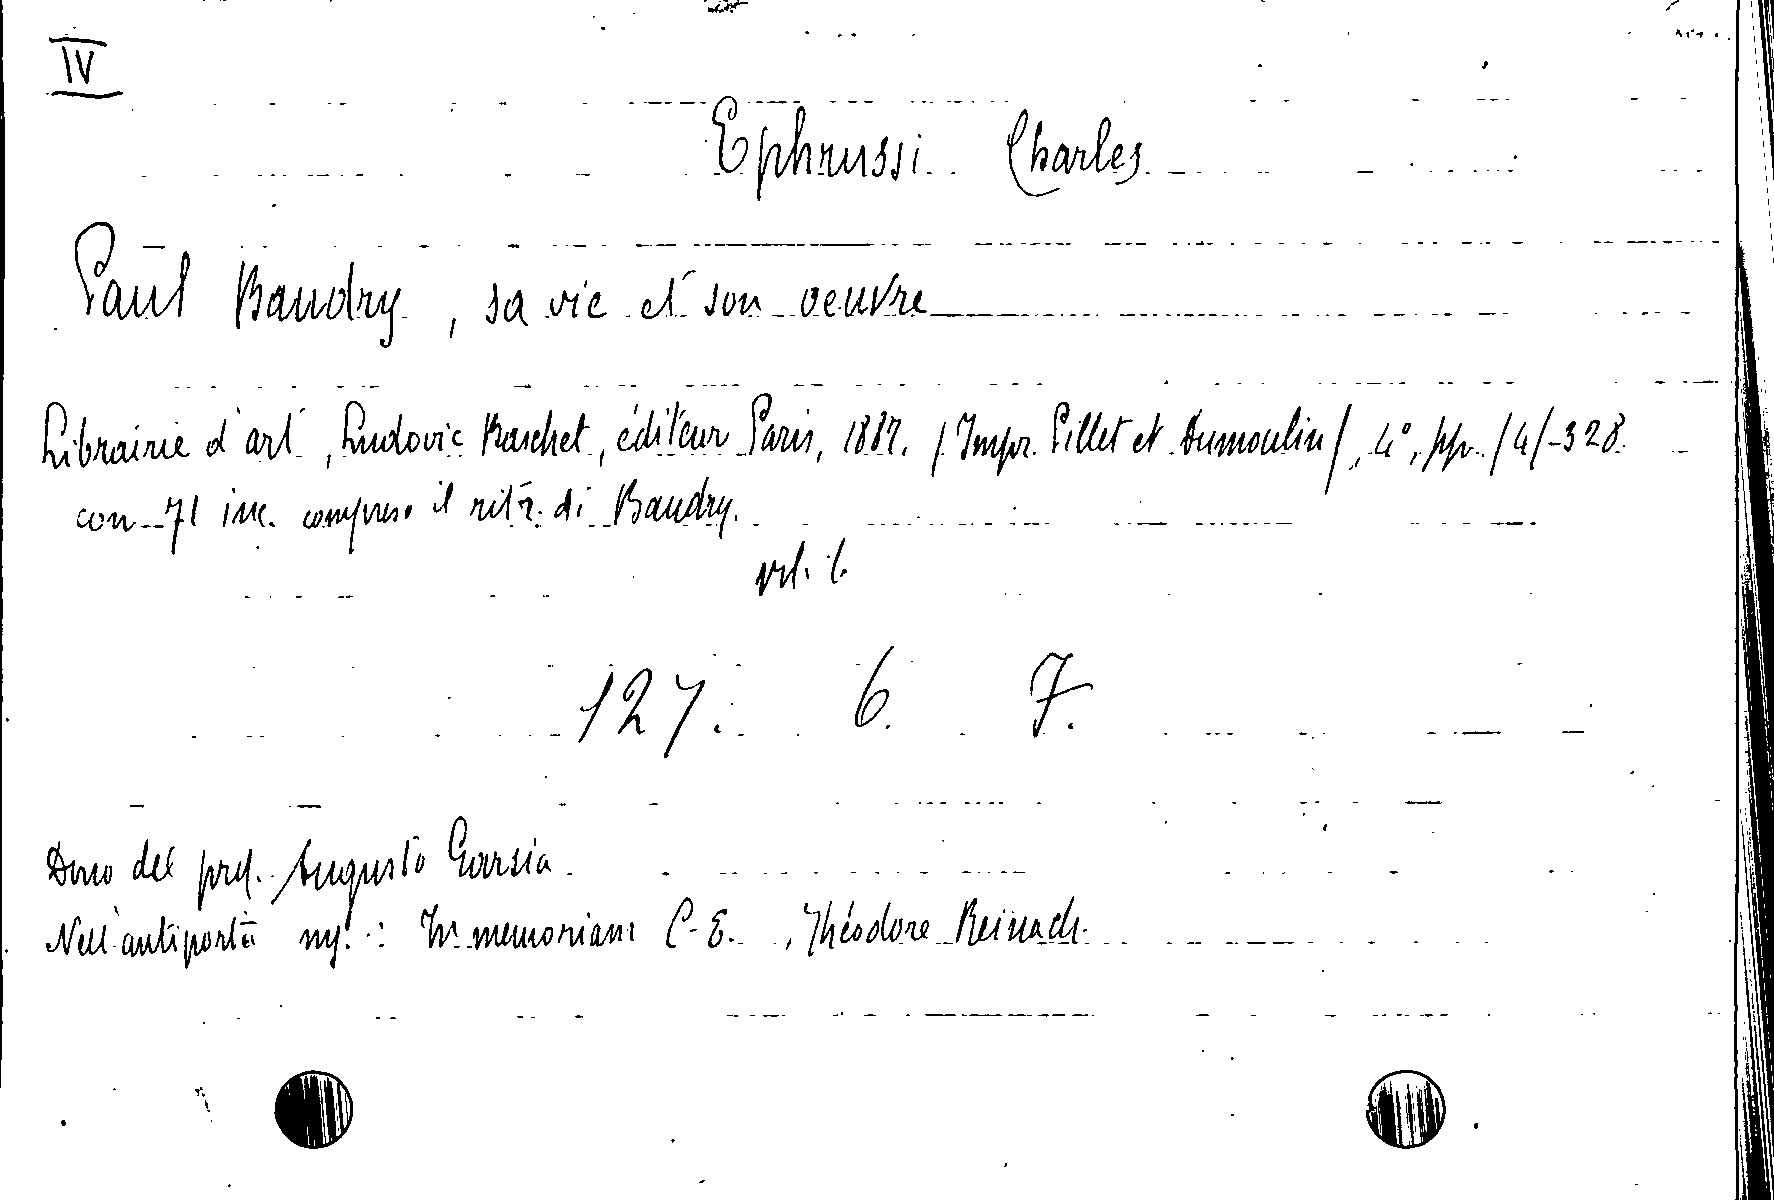 IV
Ephrussi Charles
Paul Baudry, sa vie et son oeuvre
Librairie d'art, Ludovic Baschet, éditeur Paris, 1887. (Impr. Pillet et Dumoulin), 4°, pp. (4)-328.
con 71 inc. compreso il ritr. di Baudry.
vol. 1.
127. 6. 7.
Dono del prof. Augusto Garsia
Nell'antiporta ms.: In memoriam C. E., Théodore Reinach.